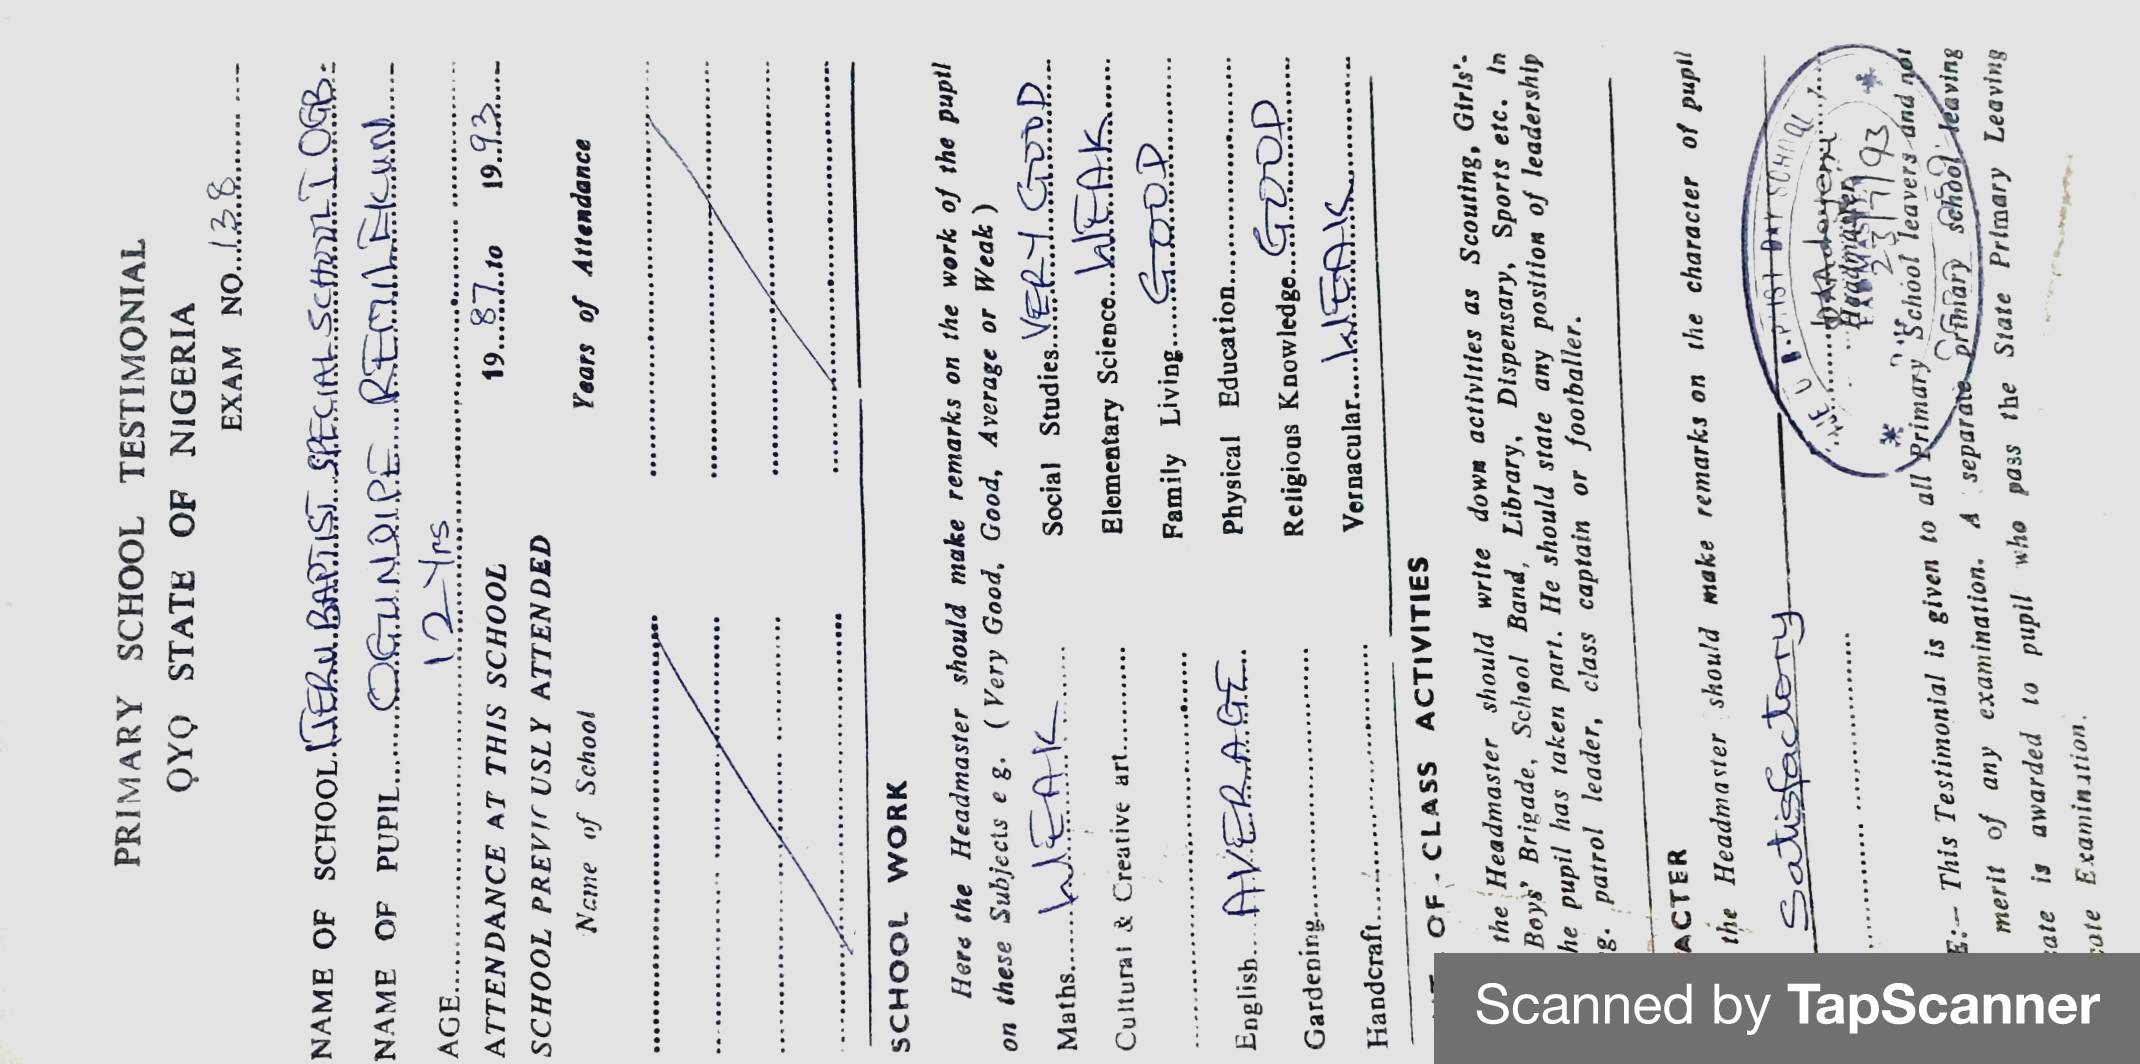 PRIMARY SCHOOL TESTIMONIAL
OYO STATE OF NIGERIA
EXAM NO. 138
NAME OF SCHOOL BAPTIST SPECIAL SCHOOL I OGB.
NAME OF PUPIL OGUNDIPE REMILEKUN
AGE 12 Yrs
ATTENDANCE AT THIS SCHOOL 19 87 to 19 93
SCHOOL PREVIOUSLY ATTENDED
Name of School Years of Attendance
SCHOOL WORK
Here the Headmaster should make remarks on the work of the pupil
on these Subjects e g. (Very Good, Good, Average or Weak)
Maths WEAK Social Studies VERY GOOD
Cultural & Creative art Elementary Science WEAK
Family Living GOOD
English AVERAGE Physical Education
Gardening Religious Knowledge GOOD
Handcraft Vernacular WEAK
OF - CLASS ACTIVITIES
the Headmaster should write down activities as Scouting, Girls'-
Boys' Brigade, School Band, Library, Dispensary, Sports etc. In
he pupil has taken part. He should state any position of leadership
g. patrol leader, class captain or footballer.
ACTER
the Headmaster should make remarks on the character of pupil
Satisfactory
DAY SCHOOL
Headmaster
23/7/93
E:— This Testimonial is given to all Primary School leavers and not
merit of any examination. A separate primary school leaving
cate is awarded to pupil who pass the State Primary Leaving
cate Examination.
Scanned by TapScanner